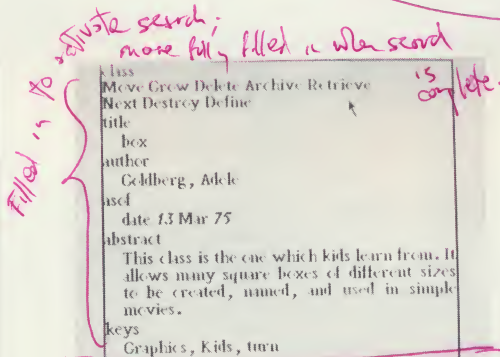 Filled in to activate search;
more fully filled in when search
is
complete.
class
Move Grow Delete Archive Retrieve
Next Destroy Define
title
box
author
Goldberg, Adele
asof
date 13 Mar 75
abstract
This class is the one which kids learn from. It
allows many square boxes of different sizes
to be created, named, and used in simple
movies.
keys
Graphics, Kids, turn